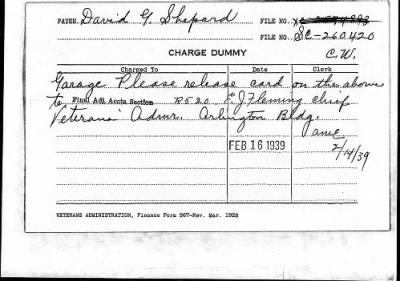 PAYEE David G. Shepard FILE NO.
FILE NO. SC-260420
CHARGE DUMMY C.W.
Charged To Date Clerk
Garage Please release card on the above
to Final Adj. Accts. Section R520 E.J. Fleming chief
Veterans' Admr. Arlington Bldg.
FEB 16 1939 ame
2/14/39
VETERANS ADMINISTRATION, Finance Form 967—Rev. Mar. 1928